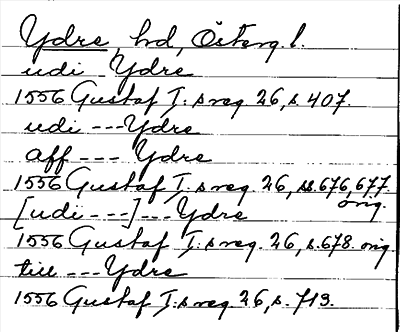 Ydre, hd, Österg l.
udi Ydre
1556 Gustaf I:s reg. 26, s. 407.
udi --- Ydre
aff --- Ydre
1556 Gustaf I:s reg. 26, ss. 676, 677 orig.
[udi ---] --- Ydre
1556 Gustaf I:s reg. 26, s. 678. orig.
till --- Ydre
1556 Gustaf I:s reg. 26, s. 713.